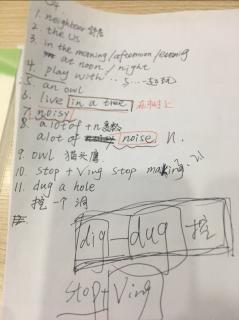 U4
1. neighbour 邻居
2. the US
3. in the morning/afternoon/evening
at noon / night
4. play with ·· 5···玩
5. an owl
6. live in a tree 在树上
7. noisy
8. a lot of + n.复数
a lot of noise. n.
9. owl 猫头鹰
10. stop + Ving stop making
11. dug a hole
挖一个洞
dig – dug 挖
stop + Ving